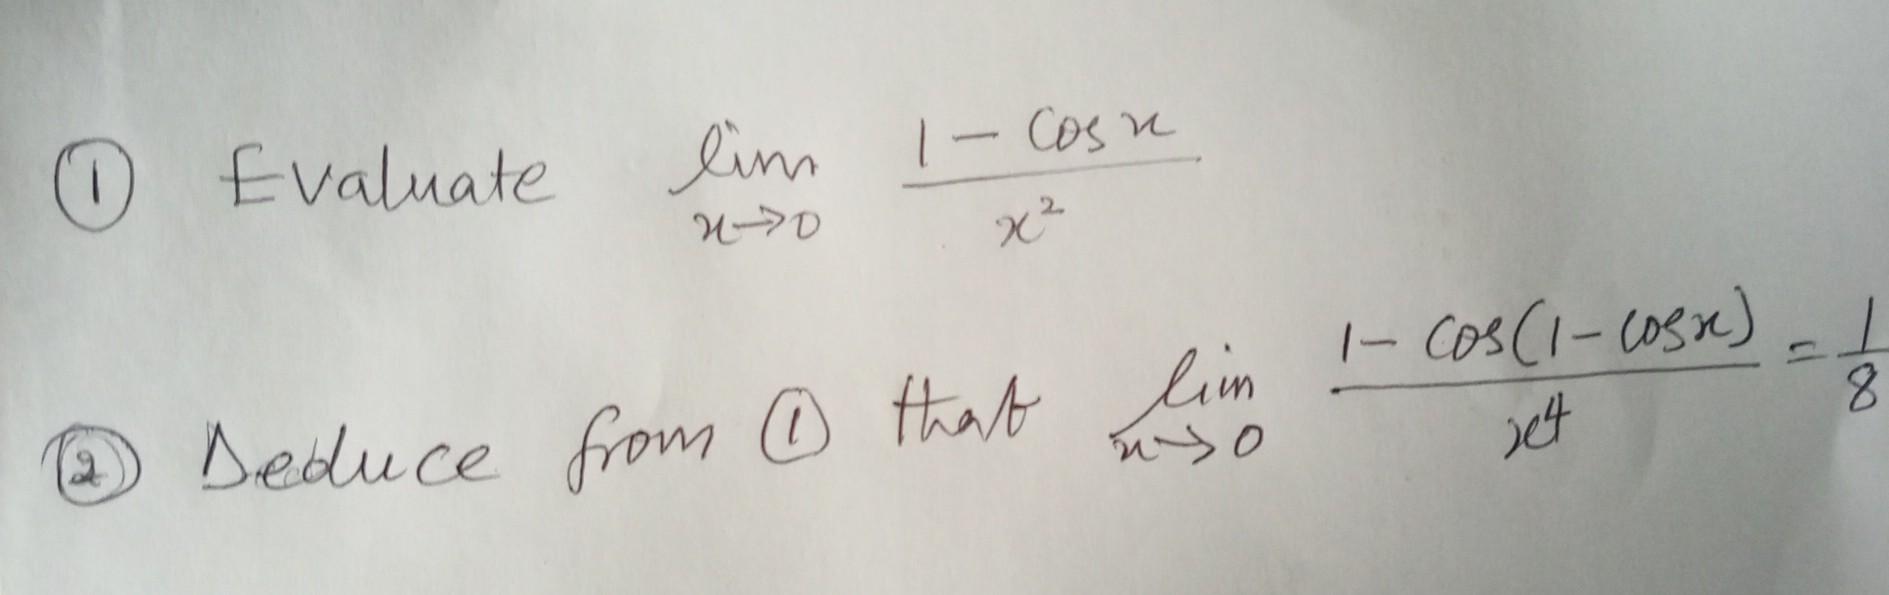 ① Evaluate lim x→0 (1 - Cos x)/x²
② Deduce from ① that lim x→0 (1 - Cos(1 - cos x))/x⁴ = 1/8